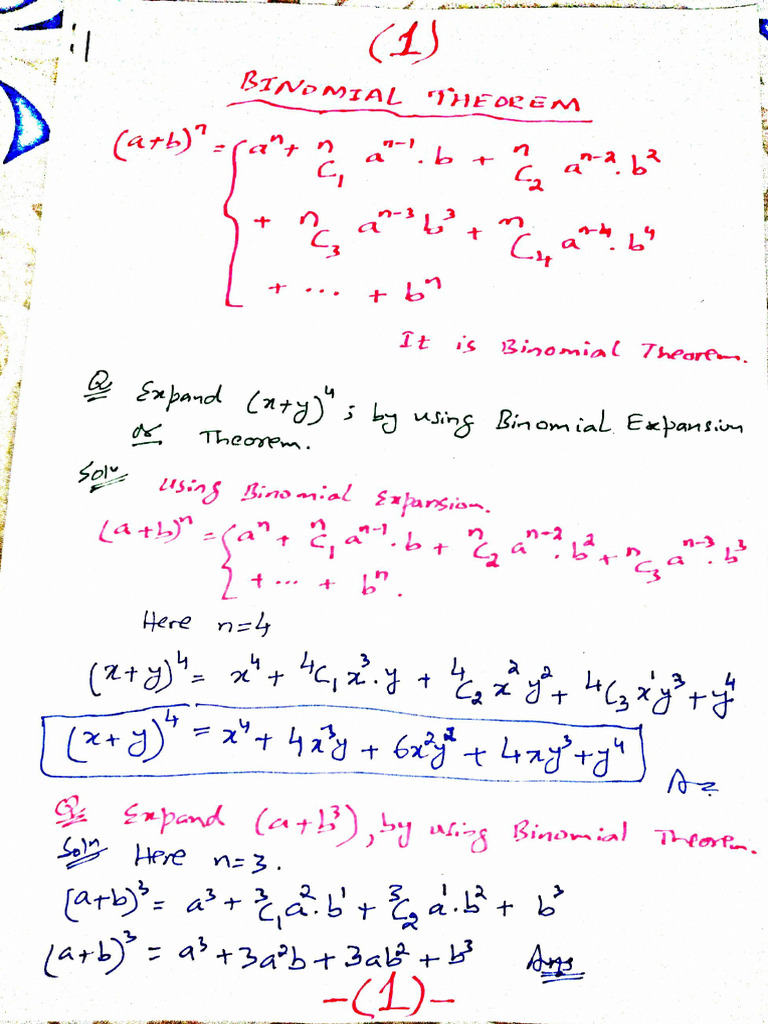 (1)
BINOMIAL THEOREM
(a+b)ⁿ = { aⁿ + ⁿC₁ aⁿ⁻¹·b + ⁿC₂ aⁿ⁻²·b²
+ ⁿC₃ aⁿ⁻³b³ + ⁿC₄ aⁿ⁻⁴·b⁴
+ ... + bⁿ
It is Binomial Theorem.
Q Expand (x+y)⁴; by using Binomial Expansion
or Theorem.
Solu Using Binomial Expansion.
(a+b)ⁿ = { aⁿ + ⁿC₁ aⁿ⁻¹·b + ⁿC₂ aⁿ⁻²·b² + ⁿC₃ aⁿ⁻³·b³
+ ... + bⁿ.
Here n=4
(x+y)⁴ = x⁴ + ⁴C₁ x³·y + ⁴C₂ x² y² + ⁴C₃ x¹y³ + y⁴
(x+y)⁴ = x⁴ + 4x³y + 6x²y² + 4xy³ + y⁴
Q: Expand (a+b³), by using Binomial Theorem.
Soln Here n=3.
(a+b)³ = a³ + ³C₁a²·b¹ + ³C₂ a¹·b² + b³
(a+b)³ = a³ + 3a²b + 3ab² + b³ Ans
-(1)-